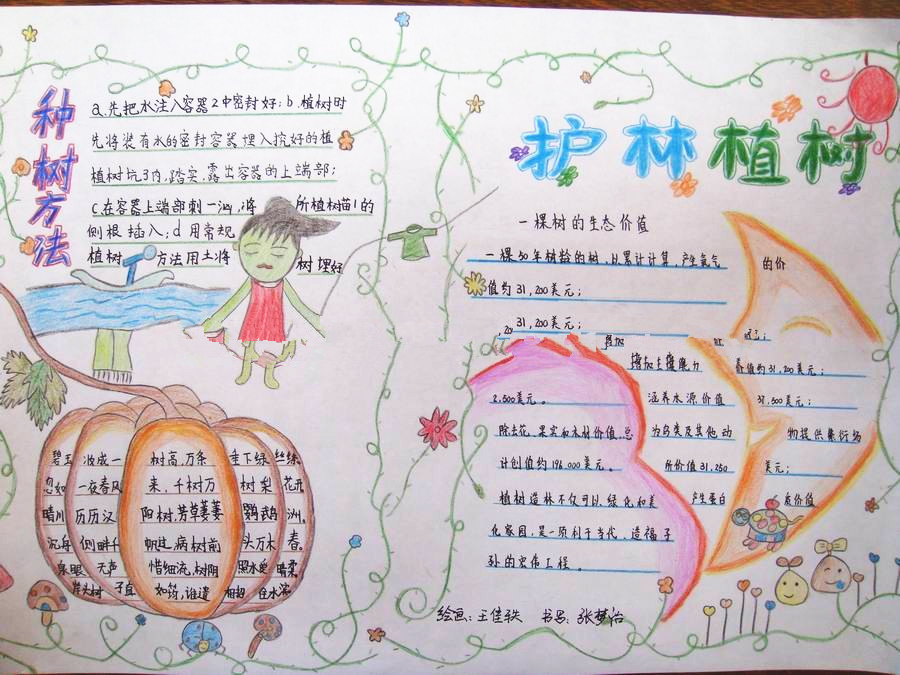 种树方法
a.先把水注入容器2中密封好;b.植树时
先将装有水的密封容器埋入挖好的植
植树坑3内,踏实,露出容器的上端部;
c.在容器上端部刺一洞,将 所植树苗1的
侧根插入;d用常规
植树 方法用土将 树埋好
碧玉 妆成一 树高,万条 垂下绿 丝绦。
忽如 一夜春风 来,千树万 树梨 花开
晴川 历历汉 阳树,芳草萋萋 鹦鹉 洲。
沉舟 侧畔千 帆过,病树前 头万木 春。
泉眼 无声 惜细流,树阴 照水爱 晴柔
岸头树 子直 如筠,谁遣 相 住水
护林植树
一棵树的生态价值
一棵50年树龄的树,以累计计算,产生氧气 的价
值约31,200美元;
,20 31,200美元;
增加土壤肥力 价值约31,200美元;
2,500美元。 涵养水源价值 37,500美元;
除去花、果实和木材价值,总 为鸟类及其他动 物提供繁衍场
计创值约196,000美元。 所价值31,250 美元;
植树造林不仅可以绿化和美 产生蛋白 质价值
化家园,是一项利于当代、造福子
孙的宏伟工程。
绘画:王佳轶 书写:张梦